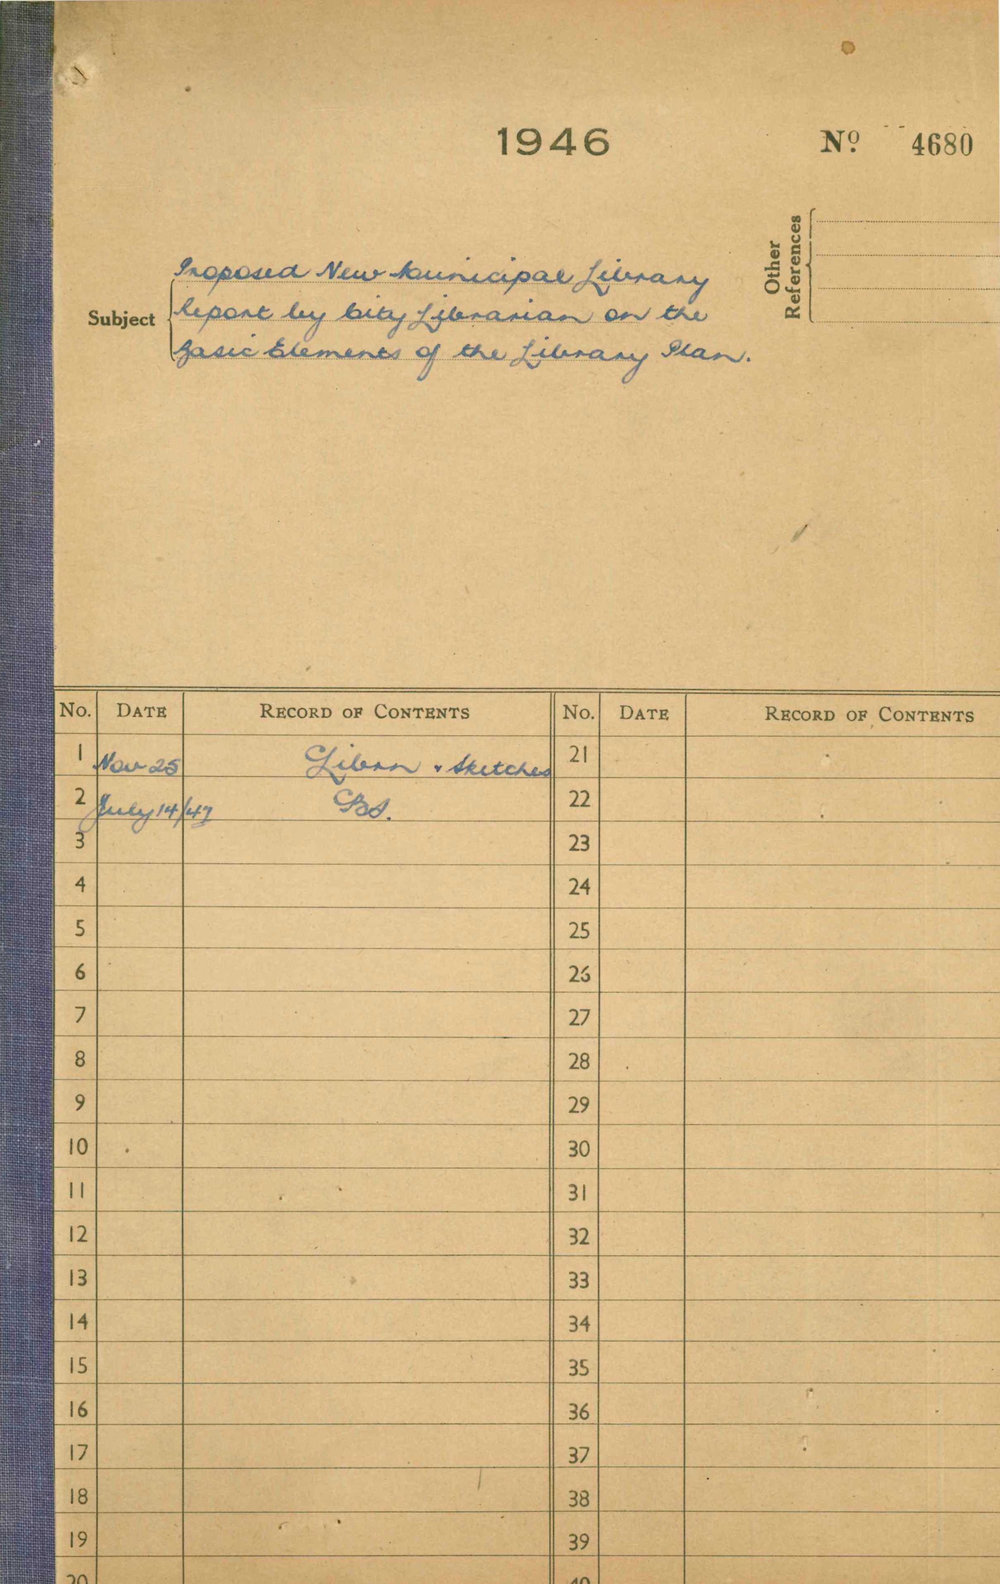 1946
Nº 4680
Other
References
Subject
Proposed New Municipal Library
Report by City Librarian on the
Basic Elements of the Library Plan.
No. DATE RECORD OF CONTENTS No. DATE RECORD OF CONTENTS
1 Nov 25 Librn & Sketches 21
2 July 14/47 22
3 23
4 24
5 25
6 26
7 27
8 28
9 29
10 30
11 31
12 32
13 33
14 34
15 35
16 36
17 37
18 38
19 39
20 40